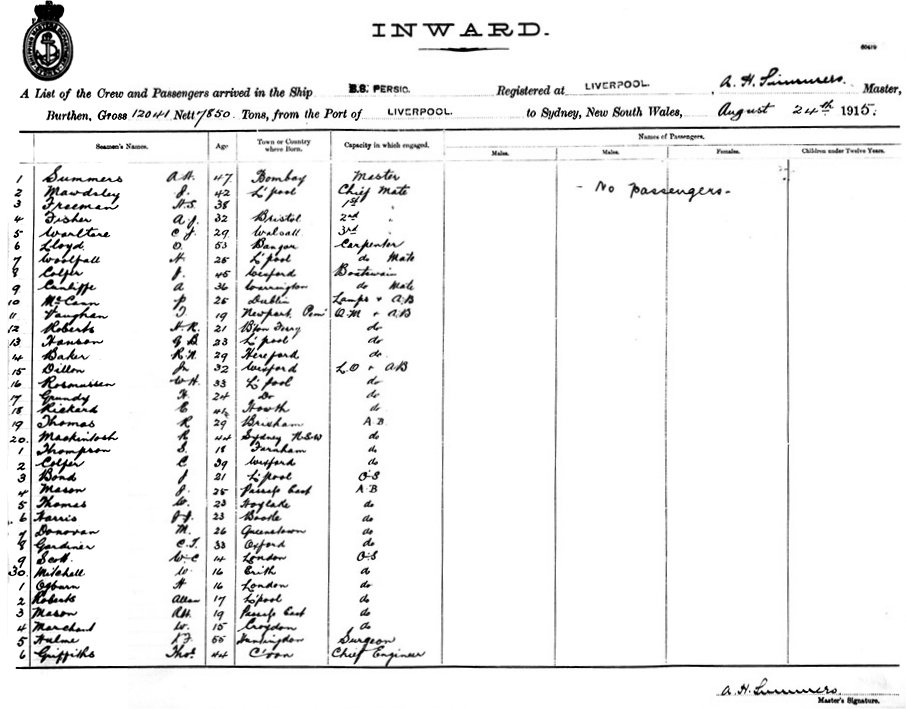 INWARD.
60419
A List of the Crew and Passengers arrived in the Ship S.S. PERSIC. Registered at LIVERPOOL. A. H. Summers. Master,
Burthen, Gross 12041 Nett 7850 Tons, from the Port of LIVERPOOL. to Sydney, New South Wales, August 24th 1915.
Seamen's Names. Age Town or Country where Born. Capacity in which engaged. Names of Passengers.
Males. Males. Females. Children under Twelve Years.
1 Summers A.H. 47 Bombay Master
2 Mawdsley J. 42 L'pool Chief Mate - No passengers -
3 Freeman H.S. 38 1st "
4 Fisher A.J. 32 Bristol 2nd "
5 Warltire C J. 29 Walsall 3rd "
6 Lloyd O. 53 Bangor Carpenter
7 Woolfall H. 25 L'pool do Mate
8 Colfer J. 45 Wexford Boatswain
9 Cunliffe A 36 Warrington do Mate
10 McCann P 25 Dublin Lamps + AB
11 Vaughan T. 19 Newport, Pem Q.M + AB
12 Roberts H.R. 21 B'ton Ferry do
13 Hanson G B 23 L'pool do
14 Baker R.N. 29 Hereford do
15 Dillon Jn 32 Wexford L.O + AB
16 Rosmussen W.H. 33 L'pool do
17 Grundy H. 24 Do do
18 Rickard E Howth do
19 Thomas R 29 Brixham A B
20. Mackintosh R 44 Sydney N.S.W do
1 Thompson S. 18 Farnham do
2 Colfer C. 39 Wexford do
3 Bond J 21 L'pool O-S
4 Mason J. 25 Passage East A B
5 Thomas W. 23 Hoylake do
6 Harris J.J. 23 Bootle do
7 Donovan M. 26 Queenstown do
8 Gardiner C.T. 33 Oxford do
9 Scott W-C 14 London O-S
30. Mitchell W 16 Erith do
1 Ogburn H 16 London do
2 Roberts Allan 17 L'pool do
3 Mason RH. 19 Passage East do
4 Marchant W. 15 Croydon do
5 Hulme 55 Huntingdon Surgeon
6 Griffiths Thos. 44 C'von Chief Engineer
A. H. Summers
Master's Signature.